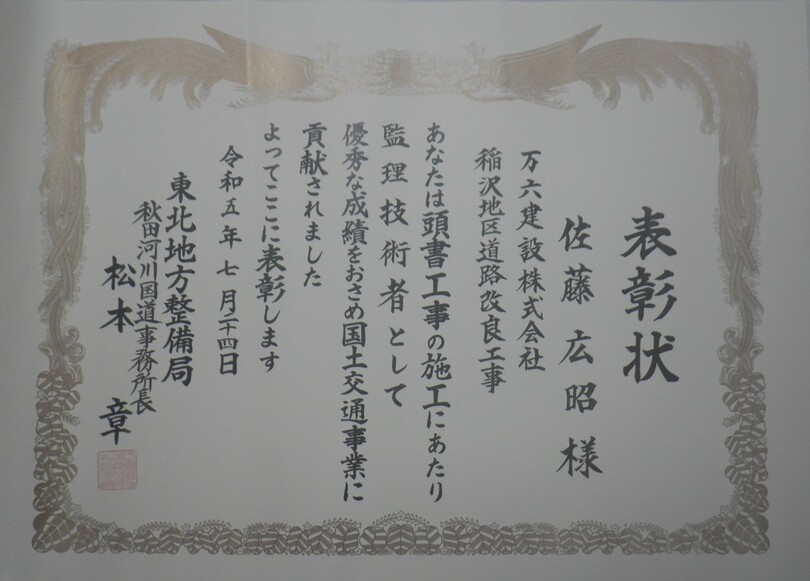 表彰状
佐藤広昭様
万六建設株式会社
稲沢地区道路改良工事
あなたは頭書工事の施工にあたり
監理技術者として
優秀な成績をおさめ国土交通事業に
貢献されました
よってここに表彰します
令和五年七月二十四日
東北地方整備局
秋田河川国道事務所長
松本章